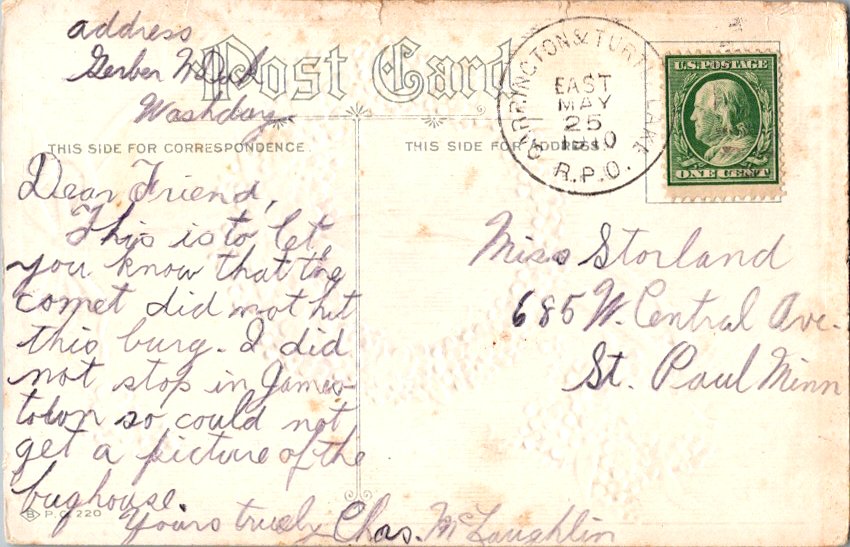 address
Gerber N. Dak
Washday
Post Card
THIS SIDE FOR CORRESPONDENCE.
THIS SIDE FOR ADDRESS.
CARRINGTON & TURTLE LAKE
EAST
MAY
25
1910
R.P.O.
U.S. POSTAGE
ONE CENT
Dear Friend,
This is to let
you know that the
comet did not hit
this burg. I did
not stop in James-
town so could not
get a picture of the
bughouse.
Yours truly Chas. McLaughlin
Miss Storland
685 W. Central Ave.
St. Paul Minn
B P.O. 220